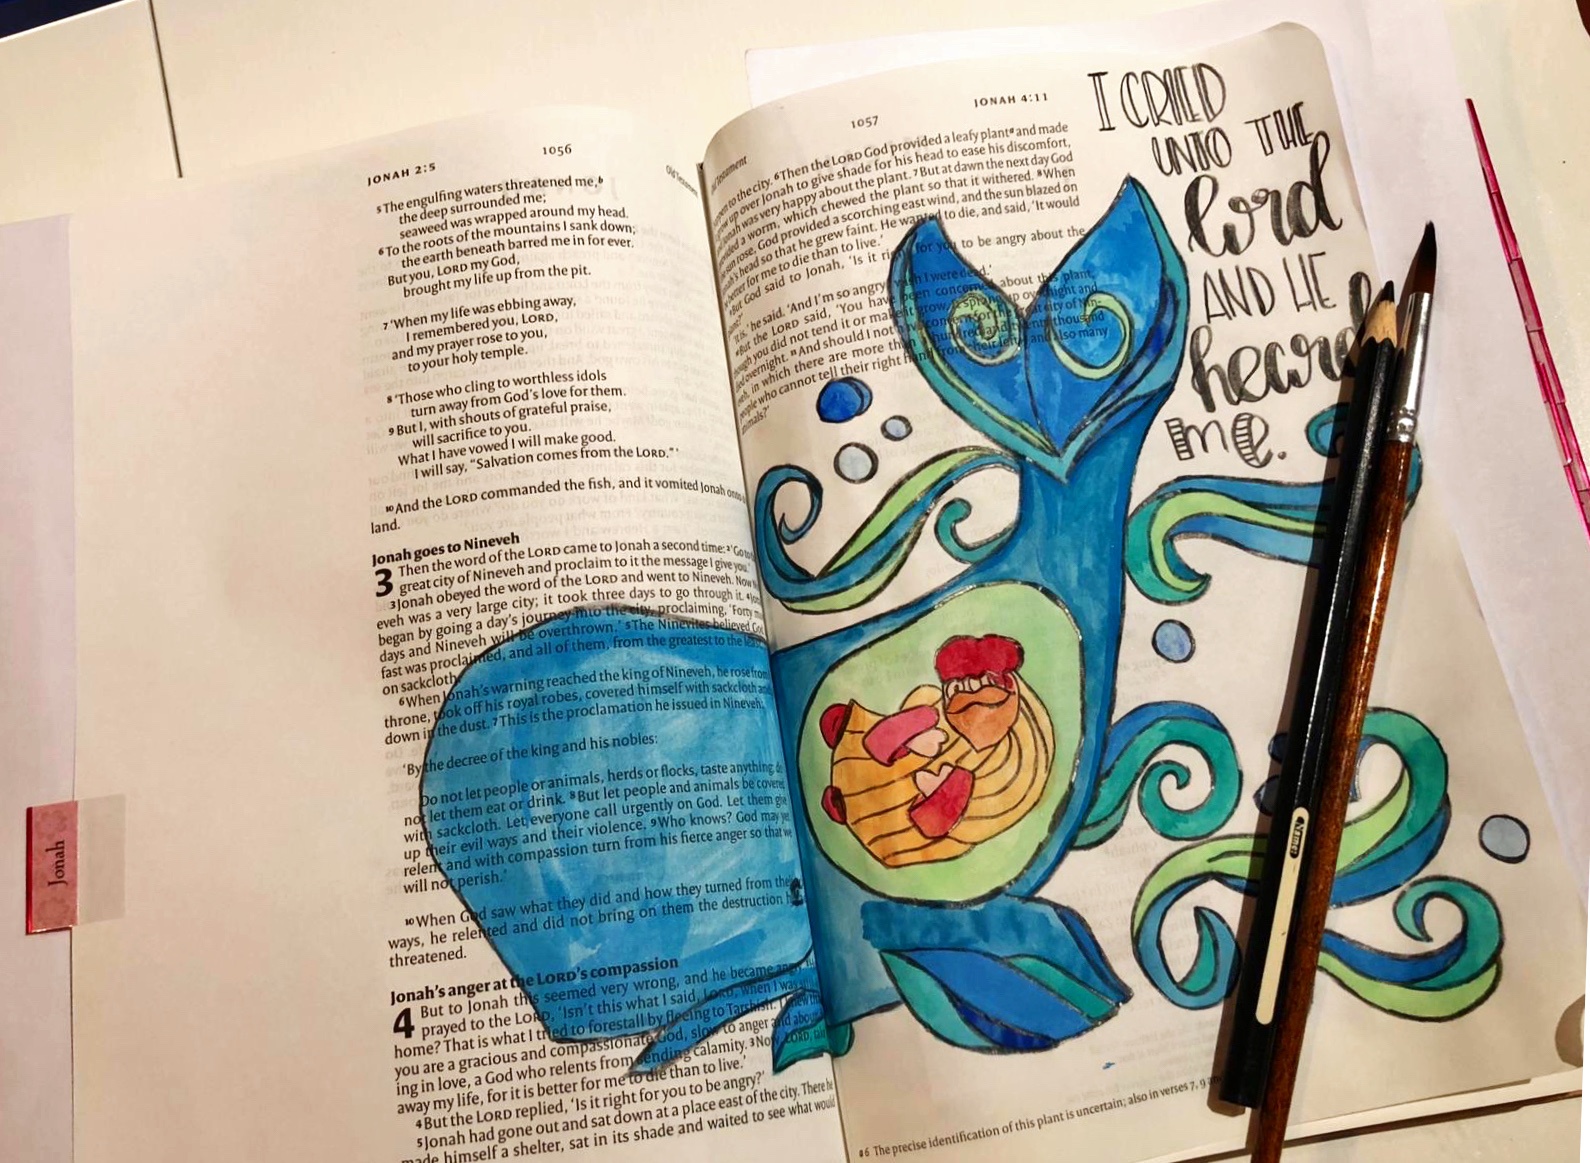 JONAH 2:5
1056
Old Testament
5 The engulfing waters threatened me,b
the deep surrounded me;
seaweed was wrapped around my head.
6 To the roots of the mountains I sank down;
the earth beneath barred me in for ever.
But you, LORD my God,
brought my life up from the pit.
7 'When my life was ebbing away,
I remembered you, LORD,
and my prayer rose to you,
to your holy temple.
8 'Those who cling to worthless idols
turn away from God's love for them.
9 But I, with shouts of grateful praise,
will sacrifice to you.
What I have vowed I will make good.
I will say, "Salvation comes from the LORD."'
10 And the LORD commanded the fish, and it vomited Jonah onto
land.
Jonah goes to Nineveh
3 Then the word of the LORD came to Jonah a second time: 2 'Go to
great city of Nineveh and proclaim to it the message I give you.'
3 Jonah obeyed the word of the LORD and went to Nineveh. Now
eveh was a very large city; it took three days to go through it. 4
began by going a day's journey into the city, proclaiming, 'Forty
days and Nineveh will be overthrown.' 5 The Ninevites believed God.
fast was proclaimed, and all of them, from the greatest to the
on sackcloth.
6 When Jonah's warning reached the king of Nineveh, he rose from
throne, took off his royal robes, covered himself with sackcloth and
down in the dust. 7 This is the proclamation he issued in Nineveh:
'By the decree of the king and his nobles:
Do not let people or animals, herds or flocks, taste anything;
not let them eat or drink. 8 But let people and animals be covered
with sackcloth. Let everyone call urgently on God. Let them give
up their evil ways and their violence. 9 Who knows? God may yet
relent and with compassion turn from his fierce anger so that we
will not perish.'
10 When God saw what they did and how they turned from their
ways, he relented and did not bring on them the destruction
threatened.
Jonah's anger at the LORD's compassion
4 But to Jonah this seemed very wrong, and he became angry.
prayed to the LORD, 'Isn't this what I said, LORD, when I was
home? That is what I tried to forestall by fleeing to Tarshish. I knew
you are a gracious and compassionate God, slow to anger and
ing in love, a God who relents from sending calamity. 3 Now, LORD,
away my life, for it is better for me to die than to live.'
4 But the LORD replied, 'Is it right for you to be angry?'
5 Jonah had gone out and sat down at a place east of the city. There he
made himself a shelter, sat in its shade and waited to see what would
Jonah
Old Testament
1057
JONAH 4:11
to the city. 6 Then the LORD God provided a leafy planta and made
up over Jonah to give shade for his head to ease his discomfort,
Jonah was very happy about the plant. 7 But at dawn the next day God
a worm, which chewed the plant so that it withered. 8 When
rose, God provided a scorching east wind, and the sun blazed on
head so that he grew faint. He wanted to die, and said, 'It would
better for me to die than to live.'
But God said to Jonah, 'Is it right for you to be angry about the
is,' he said. 'And I'm so angry I wish I were dead.'
But the LORD said, 'You have been concerned about this plant,
though you did not tend it or make it grow. It sprang up overnight and
died overnight. 11 And should I not have concern for the great city of Nin-
eveh, in which there are more than a hundred and twenty thousand
people who cannot tell their right hand from their left, and also many
animals?'
I CRIED
UNTO THE
lord
AND HE
heard
me.
a6 The precise identification of this plant is uncertain; also in verses 7, 9